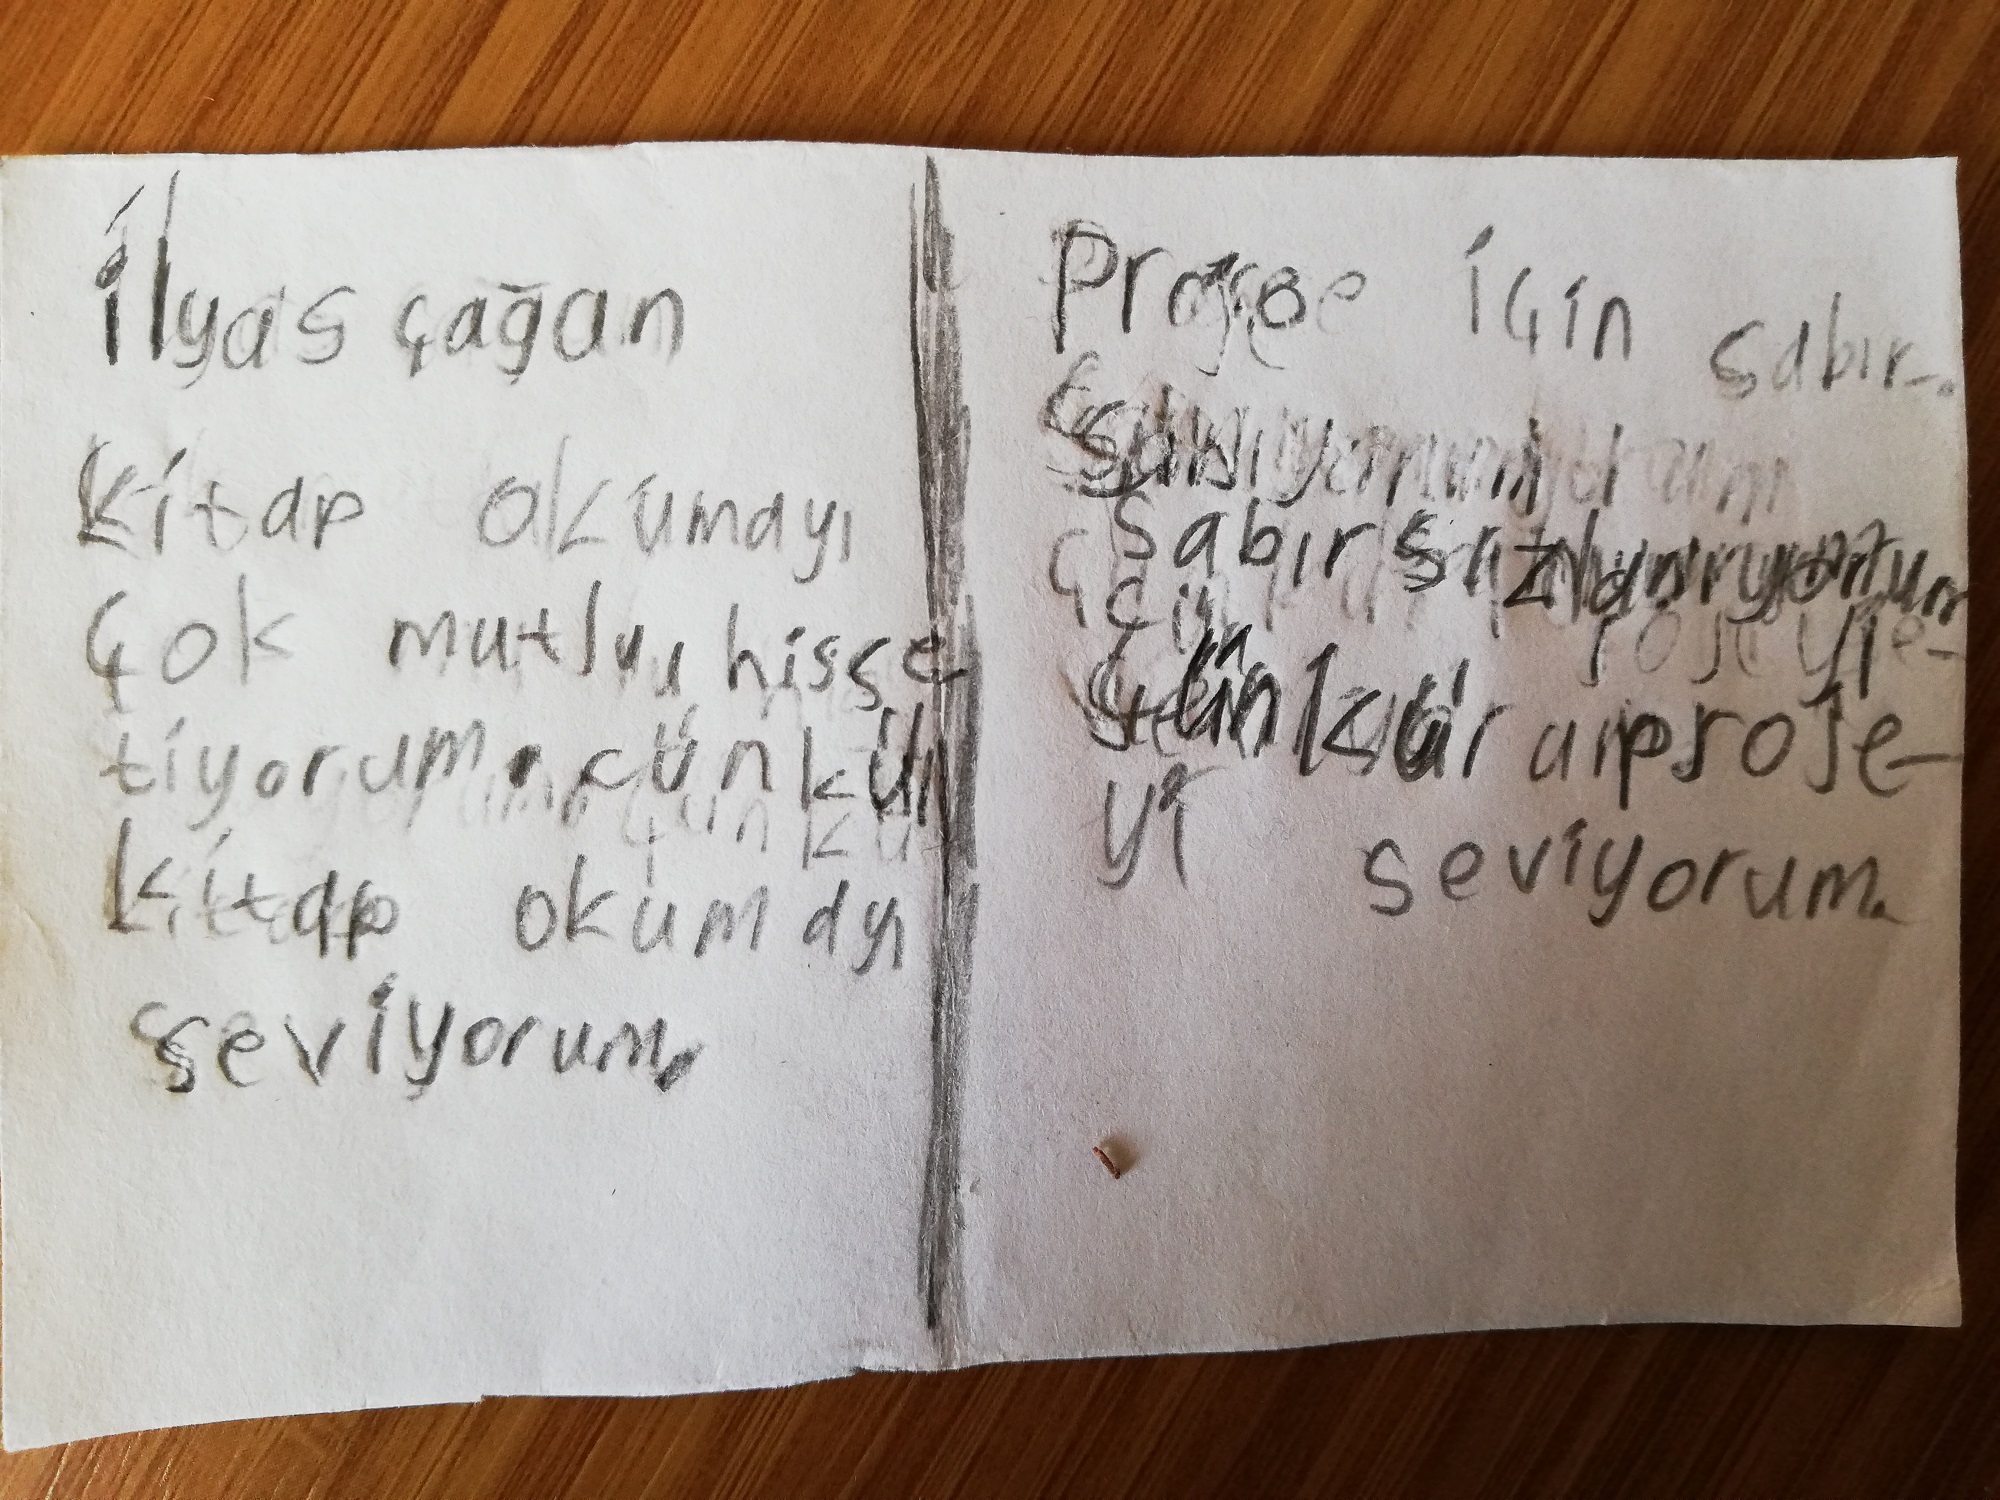 ilyas çağan
kitap okumayı
çok mutlu hisse
tiyorum. çünkü
kitap okumayı
seviyorum.
Proje için sabır-
sabırsızlanıyorum
çünkü proje-
yi seviyorum.